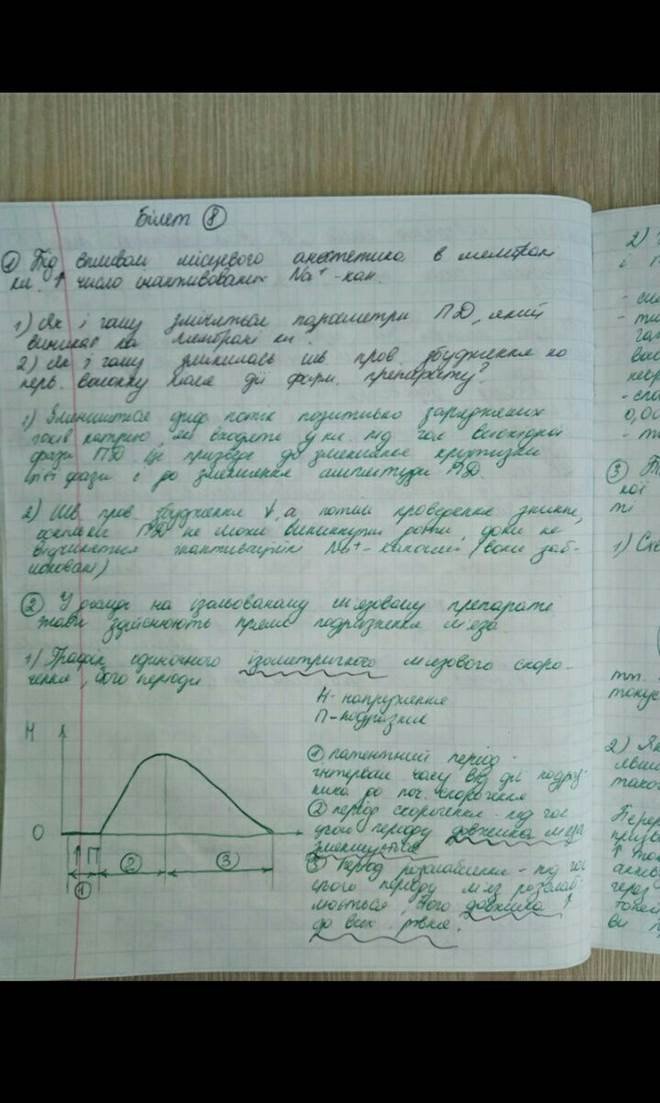 Білет 8
① Під впливом місцевого анестетика в мембрані
кл. ↑ число інактивованих Na⁺-кан.
1) Як і чому зміняться параметри ПД, який
виникає на мембрані кл.
2) Як і чому змінилась шв. пров. збудження по
нерв. волокну після дії фарм. препарату?
1) Зменшиться диф. потік позитивно заряджених
іонів натрію, які входять у кл. під час висхідної
фази ПД. Це призведе до зменшення крутизни
цієї фази і до зменшення амплітуди ПД.
2) Шв. пров. збудження ↓, а потім проведення зникне,
оскільки ПД не може виникнути доти, доки не
відчиняться інактиваційні Na⁺-каналів (вони заб-
локовані)
② У дослід на ізольованому м'язовому препараті
жаби здійснюють пряме подразнення м'яза
1) Графік одиночного ізометричного м'язового скоро-
чення, його періоди
Н - напруження
П - подразник
Н
О
П
① ② ③
① латентний період -
інтервал часу від дії подраз-
ника до поч. скорочення
② період скорочення - під час
цього періоду довжина м'яза
зменшується
③ Період розслаблення - під час
цього періоду м'яз розслаб-
люється, його довжина ↑
до вих. рівня.
2)
і
0,00
③
1) Сх
2) Як